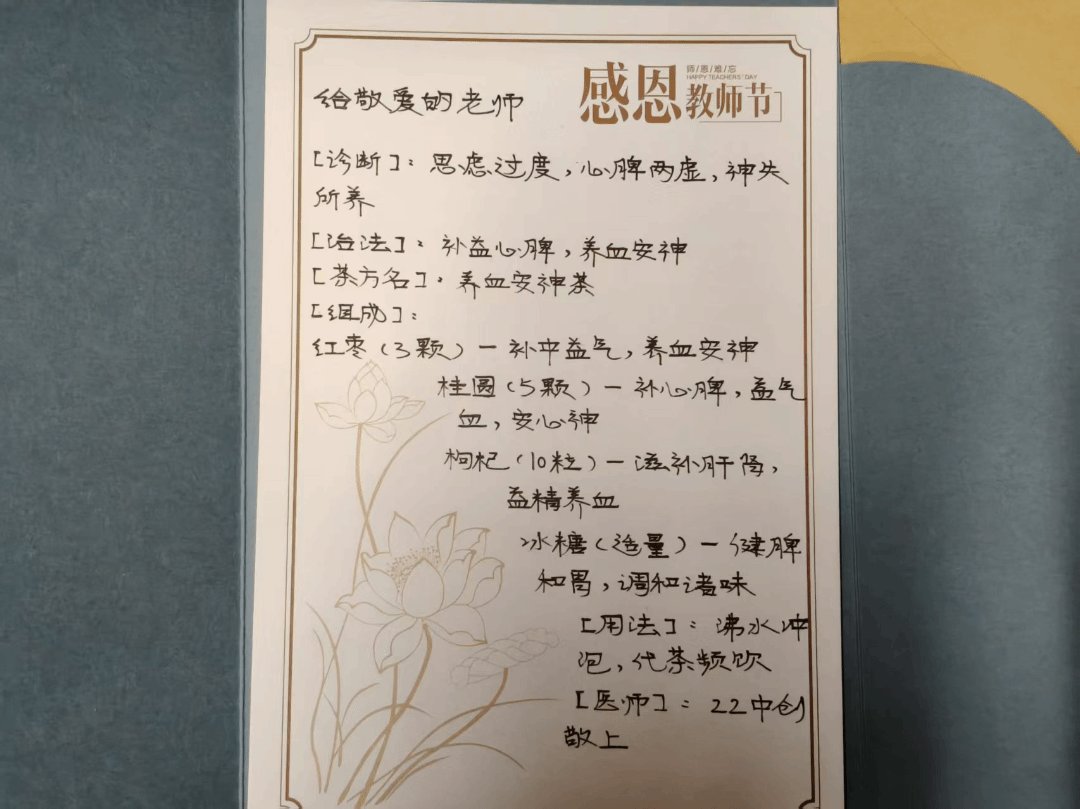 师/恩/难/忘
HAPPY TEACHERS' DAY
感恩教师节
给敬爱的老师
[诊断]：思虑过度，心脾两虚，神失
所养
[治法]：补益心脾，养血安神
[茶方名]：养血安神茶
[组成]：
红枣（3颗）一补中益气，养血安神
桂圆（5颗）一补心脾，益气
血，安心神
枸杞（10粒）一滋补肝肾，
益精养血
冰糖（适量）一健脾
和胃，调和诸味
[用法]：沸水冲
泡，代茶频饮
[医师]：22中创
敬上